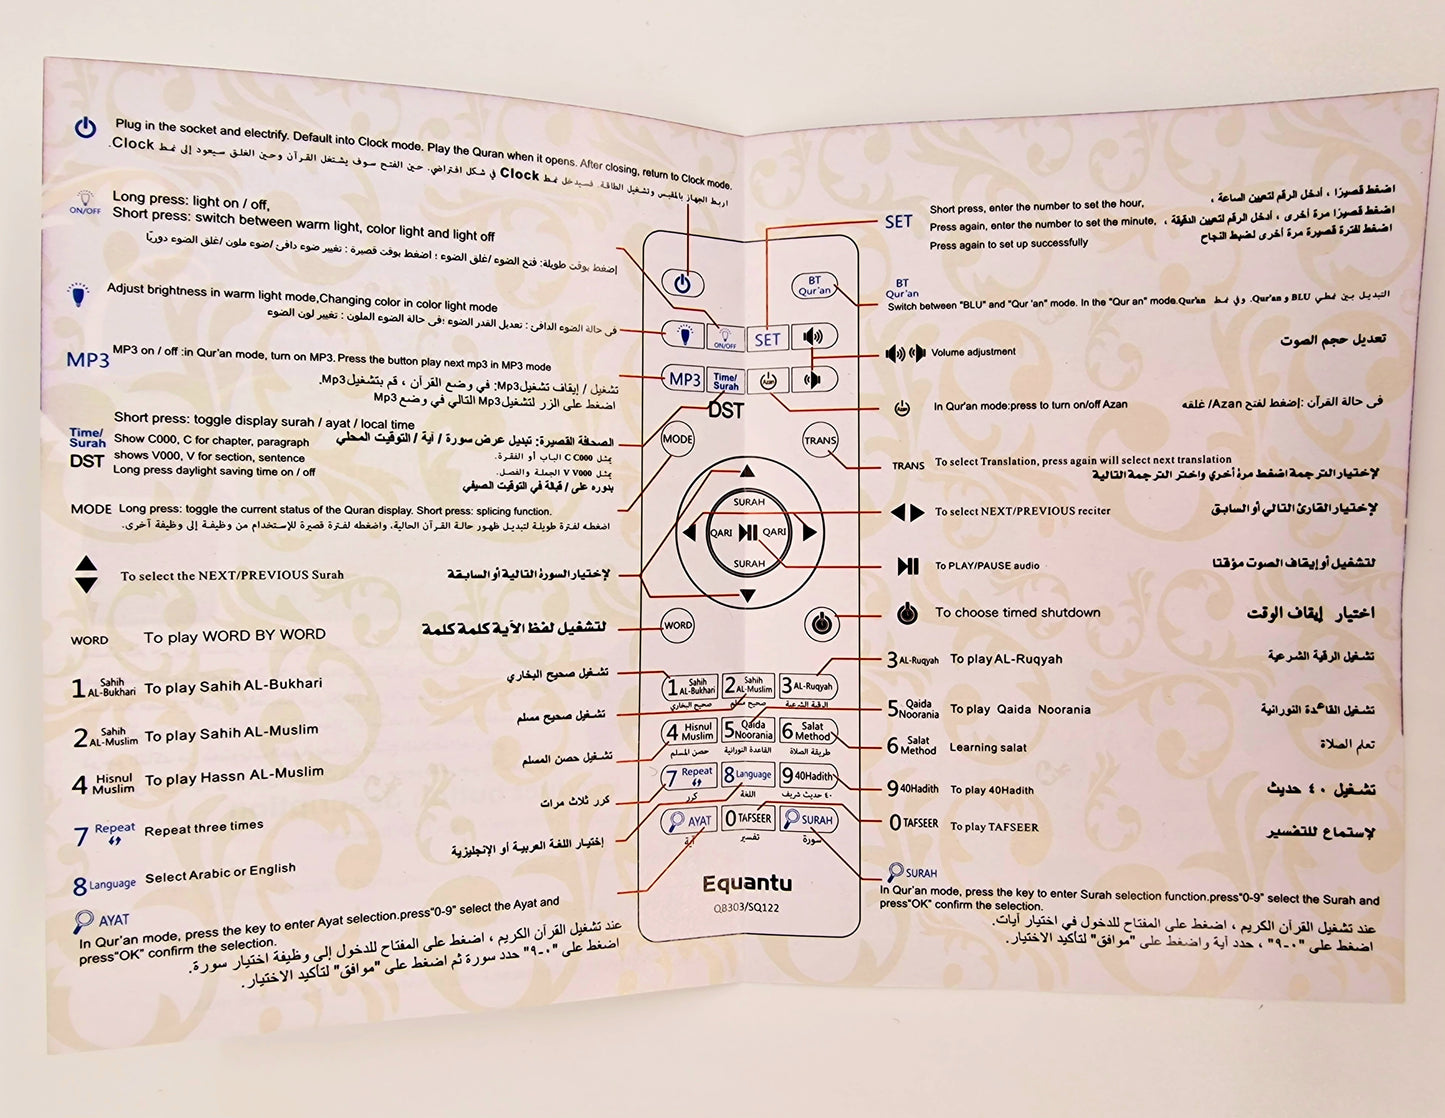 Plug in the socket and electrify. Default into Clock mode. Play the Quran when it opens. After closing, return to Clock mode.
اربط الجهاز بالمقبس وتشغيل الطاقة. فسيدخل نمط Clock في شكل افتراضي. حين الفتح سوف يشتغل القرآن وحين الغلق سيعود إلى نمط Clock.
ON/OFF
Long press: light on / off,
Short press: switch between warm light, color light and light off
إضغط بوقت طويلة: فتح الضوء /غلق الضوء ؛ اضغط بوقت قصيرة : تغيير ضوء دافئ /ضوء ملون /غلق الضوء دوريًا
Adjust brightness in warm light mode,Changing color in color light mode
في حالة الضوء الدافئ: تعديل القدر الضوء ؛في حالة الضوء الملون : تغيير لون الضوء
MP3
MP3 on / off :in Qur'an mode, turn on MP3. Press the button play next mp3 in MP3 mode
تشغيل / إيقاف تشغيلMp3: في وضع القرآن ، قم بتشغيلMp3.
اضغط على الزر لتشغيلMp3 التالي في وضع Mp3
Time/
Surah
DST
Short press: toggle display surah / ayat / local time
Show C000, C for chapter, paragraph
shows V000, V for section, sentence
Long press daylight saving time on / off
الصحافة القصيرة: تبديل عرض سورة / آية / التوقيت المحلي
يمثل C C000 الباب أو الفقرة.
يمثل V V000 الجملة والفصل.
بدوره على / قبالة في التوقيت الصيفي
MODE Long press: toggle the current status of the Quran display. Short press: splicing function.
اضغطه لفترة طويلة لتبديل ظهور حالة القرآن الحالية، واضغطه لفترة قصيرة للإستخدام من وظيفة إلى وظيفة أخرى.
To select the NEXT/PREVIOUS Surah
لإختيار السورة التالية أو السابقة
WORD To play WORD BY WORD
لتشغيل لفظ الآية كلمة كلمة
1 Sahih AL-Bukhari To play Sahih AL-Bukhari
تشغيل صحيح البخاري
2 Sahih AL-Muslim To play Sahih AL-Muslim
تشغيل صحيح مسلم
4 Hisnul Muslim To play Hassn AL-Muslim
تشغيل حصن المسلم
7 Repeat Repeat three times
كرر ثلاث مرات
8 Language Select Arabic or English
إختيار اللغة العربية أو الإنجليزية
AYAT
In Qur'an mode, press the key to enter Ayat selection.press"0-9" select the Ayat and
press"OK" confirm the selection.
عند تشغيل القرآن الكريم ، اضغط على المفتاح للدخول إلى وظيفة اختيار سورة.
اضغط على "٠-٩" حدد سورة ثم اضغط على "موافق" لتأكيد الاختيار.
BT
Qur'an
ON/OFF
SET
MP3
Time/
Surah
Azan
DST
MODE
TRANS
SURAH
QARI
QARI
SURAH
WORD
1 Sahih AL-Bukhari
2 Sahih AL-Muslim
3 AL-Ruqyah
صحيح البخاري
صحيح مسلم
الرقية الشرعية
4 Hisnul Muslim
5 Qaida Noorania
6 Salat Method
حصن المسلم
القاعدة النورانية
طريقة الصلاة
7 Repeat
8 Language
9 40Hadith
كرر
اللغة
٤٠ حديث شريف
AYAT
0 TAFSEER
SURAH
آية
تفسير
سورة
Equantu
QB303/SQ122
SET
Short press, enter the number to set the hour,
Press again, enter the number to set the minute,
Press again to set up successfully
اضغط قصيرًا ، أدخل الرقم لتعيين الساعة ،
اضغط قصيرًا مرة أخرى ، أدخل الرقم لتعيين الدقيقة ،
اضغط لفترة قصيرة مرة أخرى لضبط النجاح
BT
Qur'an
Switch between "BLU" and "Qur 'an" mode. In the "Qur an" mode.
التبديل بين نمطي BLU و Qur'an. وفي نمط Qur'an
Volume adjustment
تعديل حجم الصوت
Azan
In Qur'an mode:press to turn on/off Azan
في حالة القرآن :إضغط لفتح Azan/ غلقه
TRANS To select Translation, press again will select next translation
لإختيار الترجمة اضغط مرة أخري واختر الترجمة التالية
To select NEXT/PREVIOUS reciter
لإختيار القارئ التالي أو السابق
To PLAY/PAUSE audio
لتشغيل أو إيقاف الصوت مؤقتا
To choose timed shutdown
اختيار إيقاف الوقت
3 AL-Ruqyah To play AL-Ruqyah
تشغيل الرقية الشرعية
5 Qaida Noorania To play Qaida Noorania
تشغيل القاعدة النورانية
6 Salat Method Learning salat
تعلم الصلاة
9 40Hadith To play 40Hadith
تشغيل ٤٠ حديث
0 TAFSEER To play TAFSEER
لإستماع للتفسير
SURAH
In Qur'an mode, press the key to enter Surah selection function.press"0-9" select the Surah and
press"OK" confirm the selection.
عند تشغيل القرآن الكريم ، اضغط على المفتاح للدخول في اختيار آيات.
اضغط على "٠-٩" ، حدد آية واضغط على "موافق" لتأكيد الاختيار.